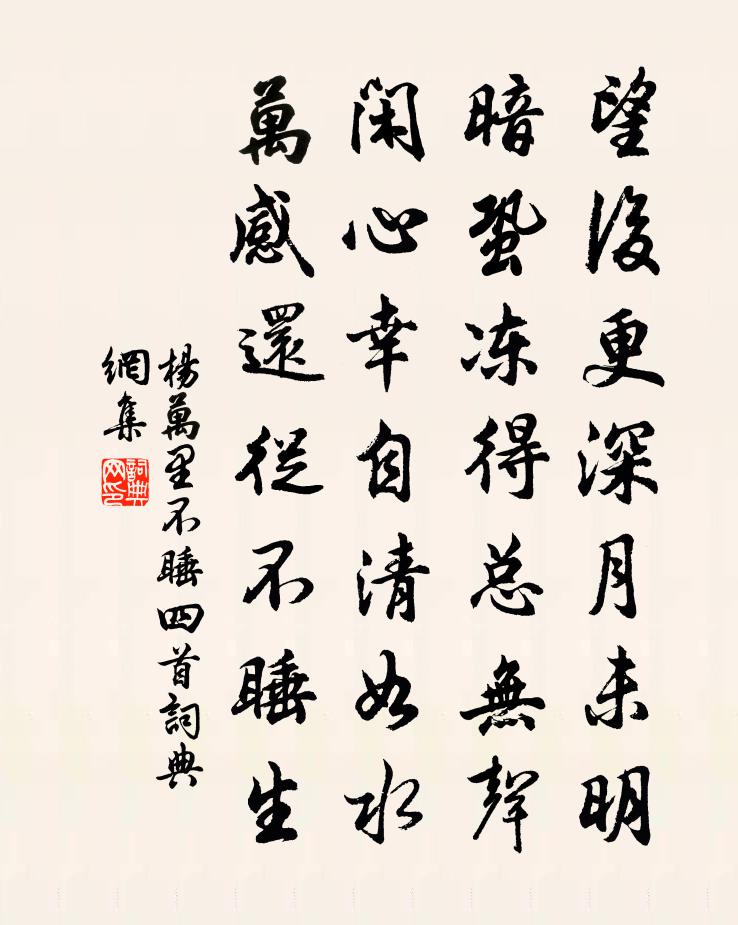 望後更深月未明
暗蛩冻得总無聲
閑心幸自清如水
萬感還從不睡生
楊萬里不睡四首詞典
網集
詞典
网印